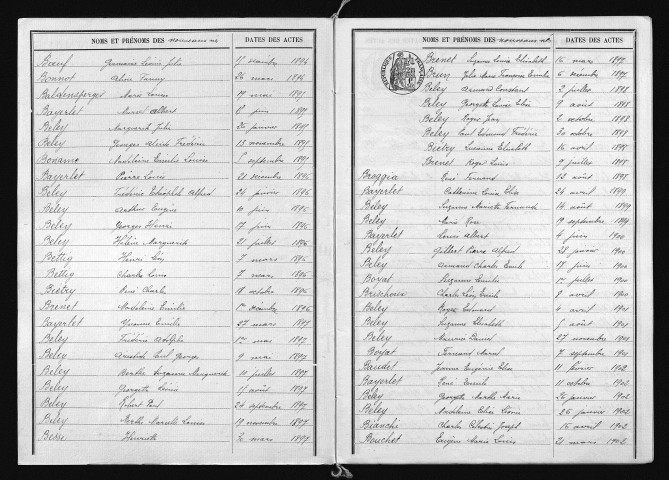 NOMS ET PRÉNOMS DES nouveaux nés DATES DES ACTES
Bœuf Germaine Louise Julie novembre
Bonnot Fanny 26 mars 1896
Baldensperger Marie Louise mars
Bayerlet Marcel Albert 8 juin
Beley Marguerite Julie 26 janvier
Beley Georges Alcide Frédéric 13 novembre
Boname Madeleine Emilie Louise septembre
Bayerlet Pierre Louis 21 décembre
Beley Frédéric Alfred 24 janvier 1896
Beley Arthur Eugène 10 juin 1896
Beley Georges Henri 17 juin 1896
Beley Hélène Marguerite 21 juillet 1896
Bettig Henri Léon 7 mars 1896
Bettig Charles Louis 7 mars 1896
Bietry René Charles 18 octobre 1896
Brenet Madeleine Emilie décembre 1896
Bayerlet Yvonne Emilie 27 mars 1897
Beley Frédéric Adolphe mai 1897
Beley Aristide Paul Georges 9 mai 1897
Beley Berthe Suzanne Marguerite 11 juillet 1897
Beley Georgette Léonie août 1897
Beley Robert Paul 24 septembre 1897
Beley Marthe Marcelle Louise 19 novembre 1897
Besse Henriette 2 mars 1897
NOMS ET PRÉNOMS DES nouveaux nés DATES DES ACTES
Brenet Suzanne Louise Elisabeth 16 mars 1897
Brun Julie Marie Françoise 6 novembre 1897
Beley Armand Constant 2 juillet 1898
Beley Georgette Louise 9 août 1898
Beley Roger Jean 2 octobre 1898
Beley Paul Edmond Frédéric 20 octobre 1898
Biétry Lucienne Elisabeth 16 avril 1898
Brenet Roger Louis 9 juillet 1898
Broggia René Fernand 12 août 1898
Bayerlet Catherine Louise Elise 24 avril 1899
Beley Suzanne Henriette Fernande 14 août 1899
Beley Marie Rose 19 septembre 1899
Bayerlet Louis Albert 4 juin 1900
Beley Gilbert Pierre Alfred 28 janvier 1900
Beley Armand Charles Emile 17 juin 1900
Boyat Suzanne Emilie juillet 1900
Charles Léon Emile 8 avril 1900
Beley Roger Edouard 4 avril 1901
Beley Suzanne Elisabeth août 1901
Beley Maurice Daniel 27 novembre 1901
Boyat Fernand Marcel 7 septembre 1901
Baudet Jeanne Eugénie 11 février 1902
Bayerlet René Emile 11 octobre 1902
Beley Georgette Marthe Marie 20 janvier 1902
Beley Madeleine Elise Léonie 26 janvier 1902
Bianchi Charles Joseph 16 avril 1902
Bouchot Eugène Marie Louis 21 mars 1902